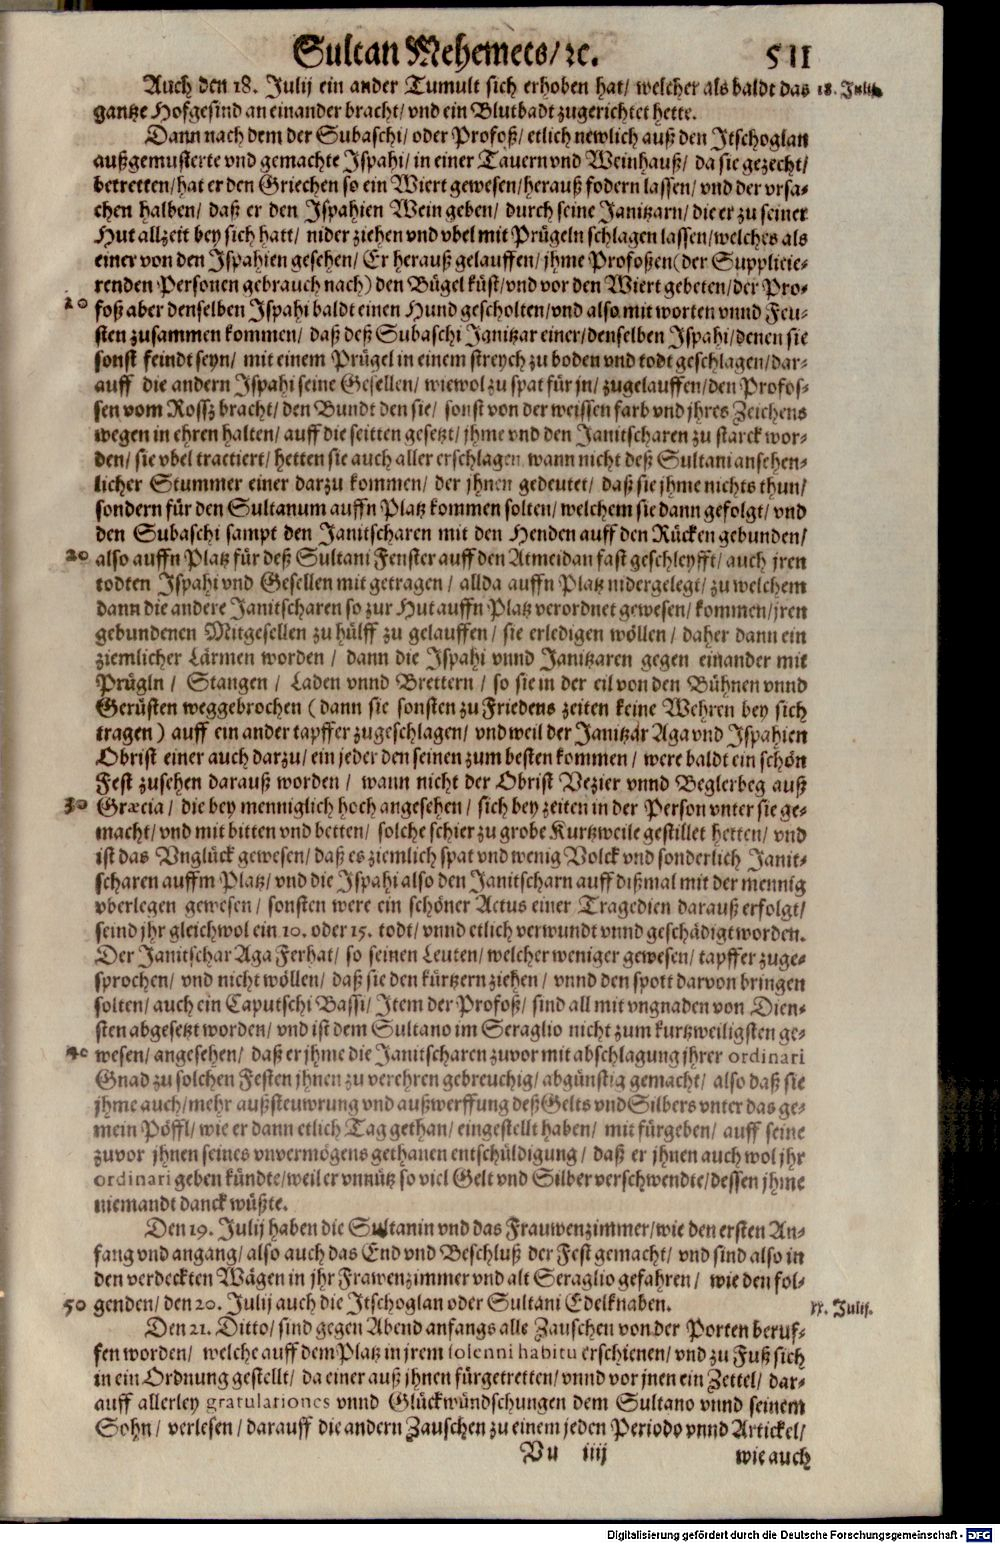 Sultan Mehemets/ ꝛc. 511
Auch den 18. Julij ein ander Tumult sich erhoben hat/ welcher als baldt das 18. Julij.
gantze Hofgesind an einander bracht/ vnd ein Blutbadt zugerichtet hette.
Dann nach dem der Subaschi/ oder Profoß/ etlich newlich auß den Itschoglan
außgemusterte vnd gemachte Ispahi/ in einer Tauern vnd Weinhauß/ da sie gezecht/
betretten/ hat er den Griechen so ein Wiert gewesen/ herauß fodern lassen/ vnd der vrsa-
chen halben/ daß er den Ispahien Wein geben/ durch seine Janitzarn/ die er zu seiner
Hut allzeit bey sich hatt/ nider ziehen vnd vbel mit Prügeln schlagen lassen/ welches als
einer von den Ispahien gesehen/ Er herauß gelauffen/ jhme Profoßen (der Supplicie-
renden Personen gebrauch nach) den Bügel küst/ vnd vor den Wiert gebeten/ der Pro-
10 foß aber denselben Ispahi baldt einen Hund gescholten/ vnd also mit worten vnnd Feu-
sten zusammen kommen/ daß deß Subaschi Janitzar einer/ denselben Ispahi/ denen sie
sonst feindt seyn/ mit einem Prügel in einem streych zu boden vnd todt geschlagen/ dar-
auff die andern Ispahi seine Gesellen/ wiewol zu spat für jn/ zugelauffen/ den Profos-
sen vom Rossz bracht/ den Bundt den sie/ sonst von der weissen farb vnd jhres Zeichens
wegen in ehren halten/ auff die seitten gesetzt/ jhme vnd den Janitscharen zu starck wor-
den/ sie vbel tractiert/ hetten sie auch aller erschlagen wann nicht deß Sultani ansehen-
licher Stummer einer darzu kommen/ der jhnen gedeutet/ daß sie jhme nichts thun/
sondern für den Sultanum auffn Platz kommen solten/ welchem sie dann gefolgt/ vnd
den Subaschi sampt den Janitscharen mit den Henden auff den Rücken gebunden/
20 also auffn Platz für deß Sultani Fenster auff den Atmeidan fast geschleyfft/ auch jren
todten Ispahi vnd Gesellen mit getragen/ allda auffn Platz nidergelegt/ zu welchem
dann die andere Janitscharen so zur Hut auffn Platz verordnet gewesen/ kommen/ jren
gebundenen Mitgesellen zu hülff zu gelauffen/ sie erledigen wöllen/ daher dann ein
ziemlicher Lärmen worden/ dann die Ispahi vnnd Janitzaren gegen einander mit
Prügln/ Stangen/ Laden vnnd Brettern/ so sie in der eil von den Bühnen vnnd
Gerüsten weggebrochen (dann sie sonsten zu Friedens zeiten keine Wehren bey sich
tragen) auff ein ander tapffer zugeschlagen/ vnd weil der Janitzar Aga vnd Ispahien
Obrist einer auch darzu/ ein jeder den seinen zum besten kommen/ were baldt ein schön
Fest zusehen darauß worden/ wann nicht der Obrist Vezier vnnd Beglerbeg auß
30 Græcia/ die bey menniglich hoch angesehen/ sich bey zeiten in der Person vnter sie ge-
macht/ vnd mit bitten vnd betten/ solche schier zu grobe Kurtzweile gestillet hetten/ vnd
ist das Vnglück gewesen/ daß es ziemlich spat vnd wenig Volck vnd sonderlich Janit-
scharen auffm Platz/ vnd die Ispahi also den Janitscharn auff dißmal mit der mennig
vberlegen gewesen/ sonsten were ein schöner Actus einer Tragedien darauß erfolgt/
seind jhr gleichwol ein 10. oder 15. todt/ vnnd etlich verwundt vnnd geschädigt worden.
Der Janitschar Aga Ferhat/ so seinen Leuten/ welcher weniger gewesen/ tapffer zuge-
sprochen/ vnd nicht wöllen/ daß sie den kürtzern ziehen/ vnnd den spott darvon bringen
solten/ auch ein Caputschi Bassi/ Item der Profoß/ sind all mit vngnaden von Dien-
sten abgesetzt worden/ vnd ist dem Sultano im Seraglio nicht zum kurtzweiligsten ge-
40 wesen/ angesehen/ daß er jhme die Janitscharen zuvor mit abschlagung jhrer ordinari
Gnad zu solchen Festen jhnen zu verehren gebreuchig/ abgünstig gemacht/ also daß sie
jhme auch/ mehr außsteuwrung vnd außwerffung deß Gelts vnd Silbers vnter das ge-
mein Pöffl/ wie er dann etlich Tag gethan/ eingestellt haben/ mit fürgeben/ auff seine
zuvor jhnen seines vnvermögens gethanen entschüldigung/ daß er jhnen auch wol jhr
ordinari geben kündte/ weil er vnnütz so viel Gelt vnd Silber verschwendte/ dessen jhme
niemandt danck wüßte.
Den 19. Julij haben die Sultanin vnd das Frauwenzimmer/ wie den ersten An-
fang vnd angang/ also auch das End vnd Beschluß der Fest gemacht/ vnd sind also in
den verdeckten Wägen in jhr Frawenzimmer vnd alt Seraglio gefahren/ wie den fol-
50 genden/ den 20. Julij auch die Itschoglan oder Sultani Edelknaben. xx. Julij.
Den 21. Ditto/ sind gegen Abend anfangs alle Zauschen von der Porten beruf-
fen worden/ welche auff dem Platz in jrem solenni habitu erschienen/ vnd zu Fuß sich
in ein Ordnung gestellt/ da einer auß jhnen fürgetretten/ vnnd vor jnen ein Zettel/ dar-
auff allerley gratulationes vnnd Glückwündschungen dem Sultano vnnd seinem
Sohn/ verlesen/ darauff die andern Zauschen zu einem jeden Periodo vnnd Artickel/
Vu iiij wie auch
Digitalisierung gefördert durch die Deutsche Forschungsgemeinschaft - DFG